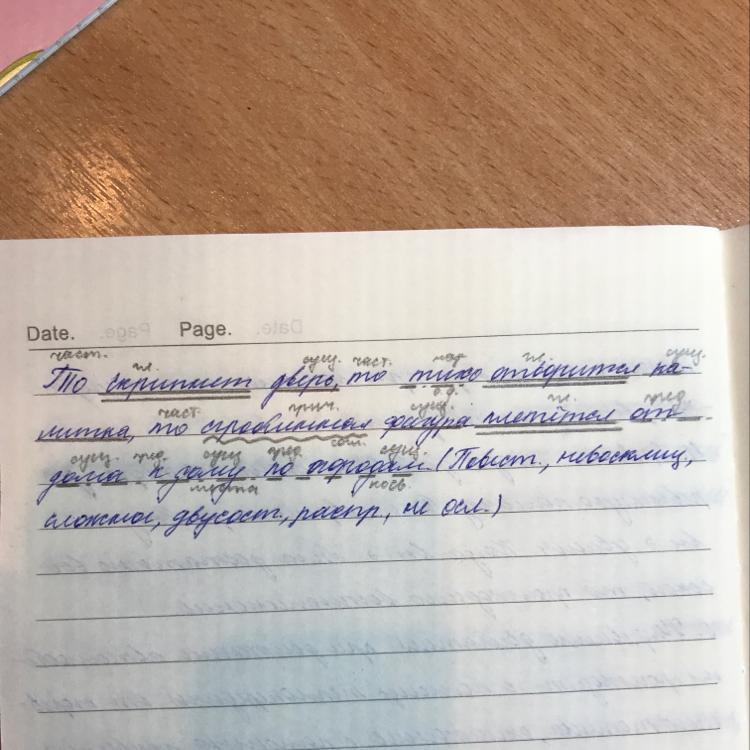 Date. Page.
част. гл. сущ. част. нар. гл. сущ.
То скрипнет дверь, то тихо отворится ка-
част. прич. сущ. гл. пред.
литка, то сгорбленная фигура плетётся от
сущ. пред. сущ. пред. сущ.
дома к дому по огородам. (Повест., невосклиц.,
места
сложное, двусост., распр., не осл.)